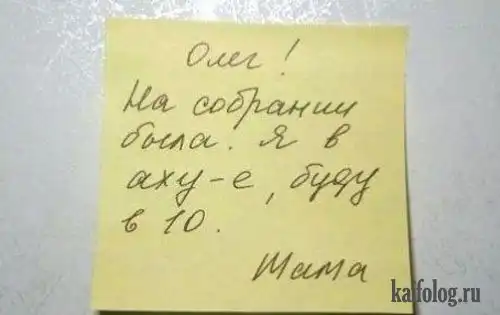 Олег!
На собрании
была. Я в
аху-е, буду
в 10.
Мама
kaifolog.ru